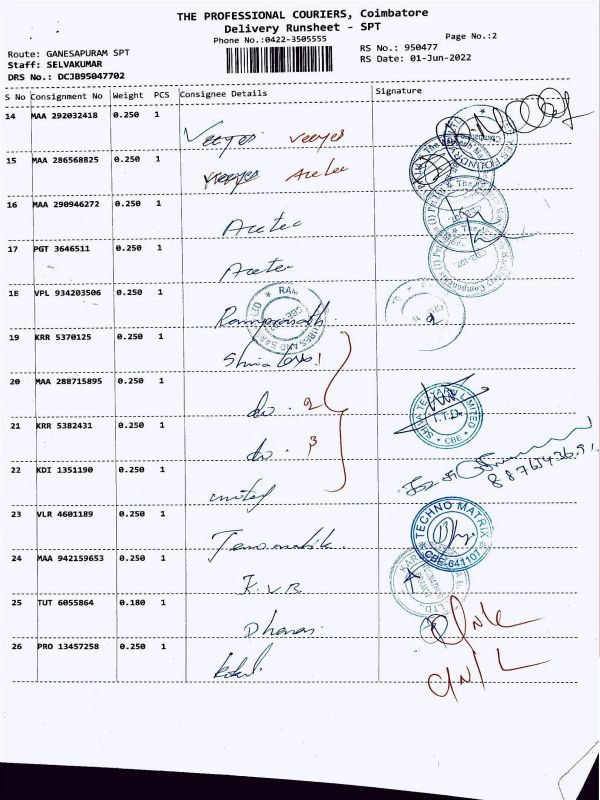 THE PROFESSIONAL COURIERS, Coimbatore
Delivery Runsheet - SPT
Phone No.:0422-3505555
Page No.:2
Route: GANESAPURAM SPT
RS No.: 950477
Staff: SELVAKUMAR
RS Date: 01-Jun-2022
DRS No.: DCJB95047702
S No Consignment No Weight PCS Consignee Details Signature
14 MAA 292032418 0.250 1
Veeyes veeyes
15 MAA 286568825 0.250 1
Acetec
16 MAA 290946272 0.250 1
Acetec
17 PGT 3646511 0.250 1
Acetec
18 VPL 934203506 0.250 1
Ramprasath
19 KRR 5370125 0.250 1
Shiva 1
20 MAA 288715895 0.250 1
do. 2
21 KRR 5382431 0.250 1
SHIVA TEXYARN LIMITED
I.T.D.
* CBE *
do. 3
22 KDI 1351190 0.250 1
united
23 VLR 4601189 0.250 1
TECHNO MATRIX
CBE-641107
24 MAA 942159653 0.250 1
K.V.B.
25 TUT 6055864 0.180 1
Dhanam
26 PRO 13457258 0.250 1